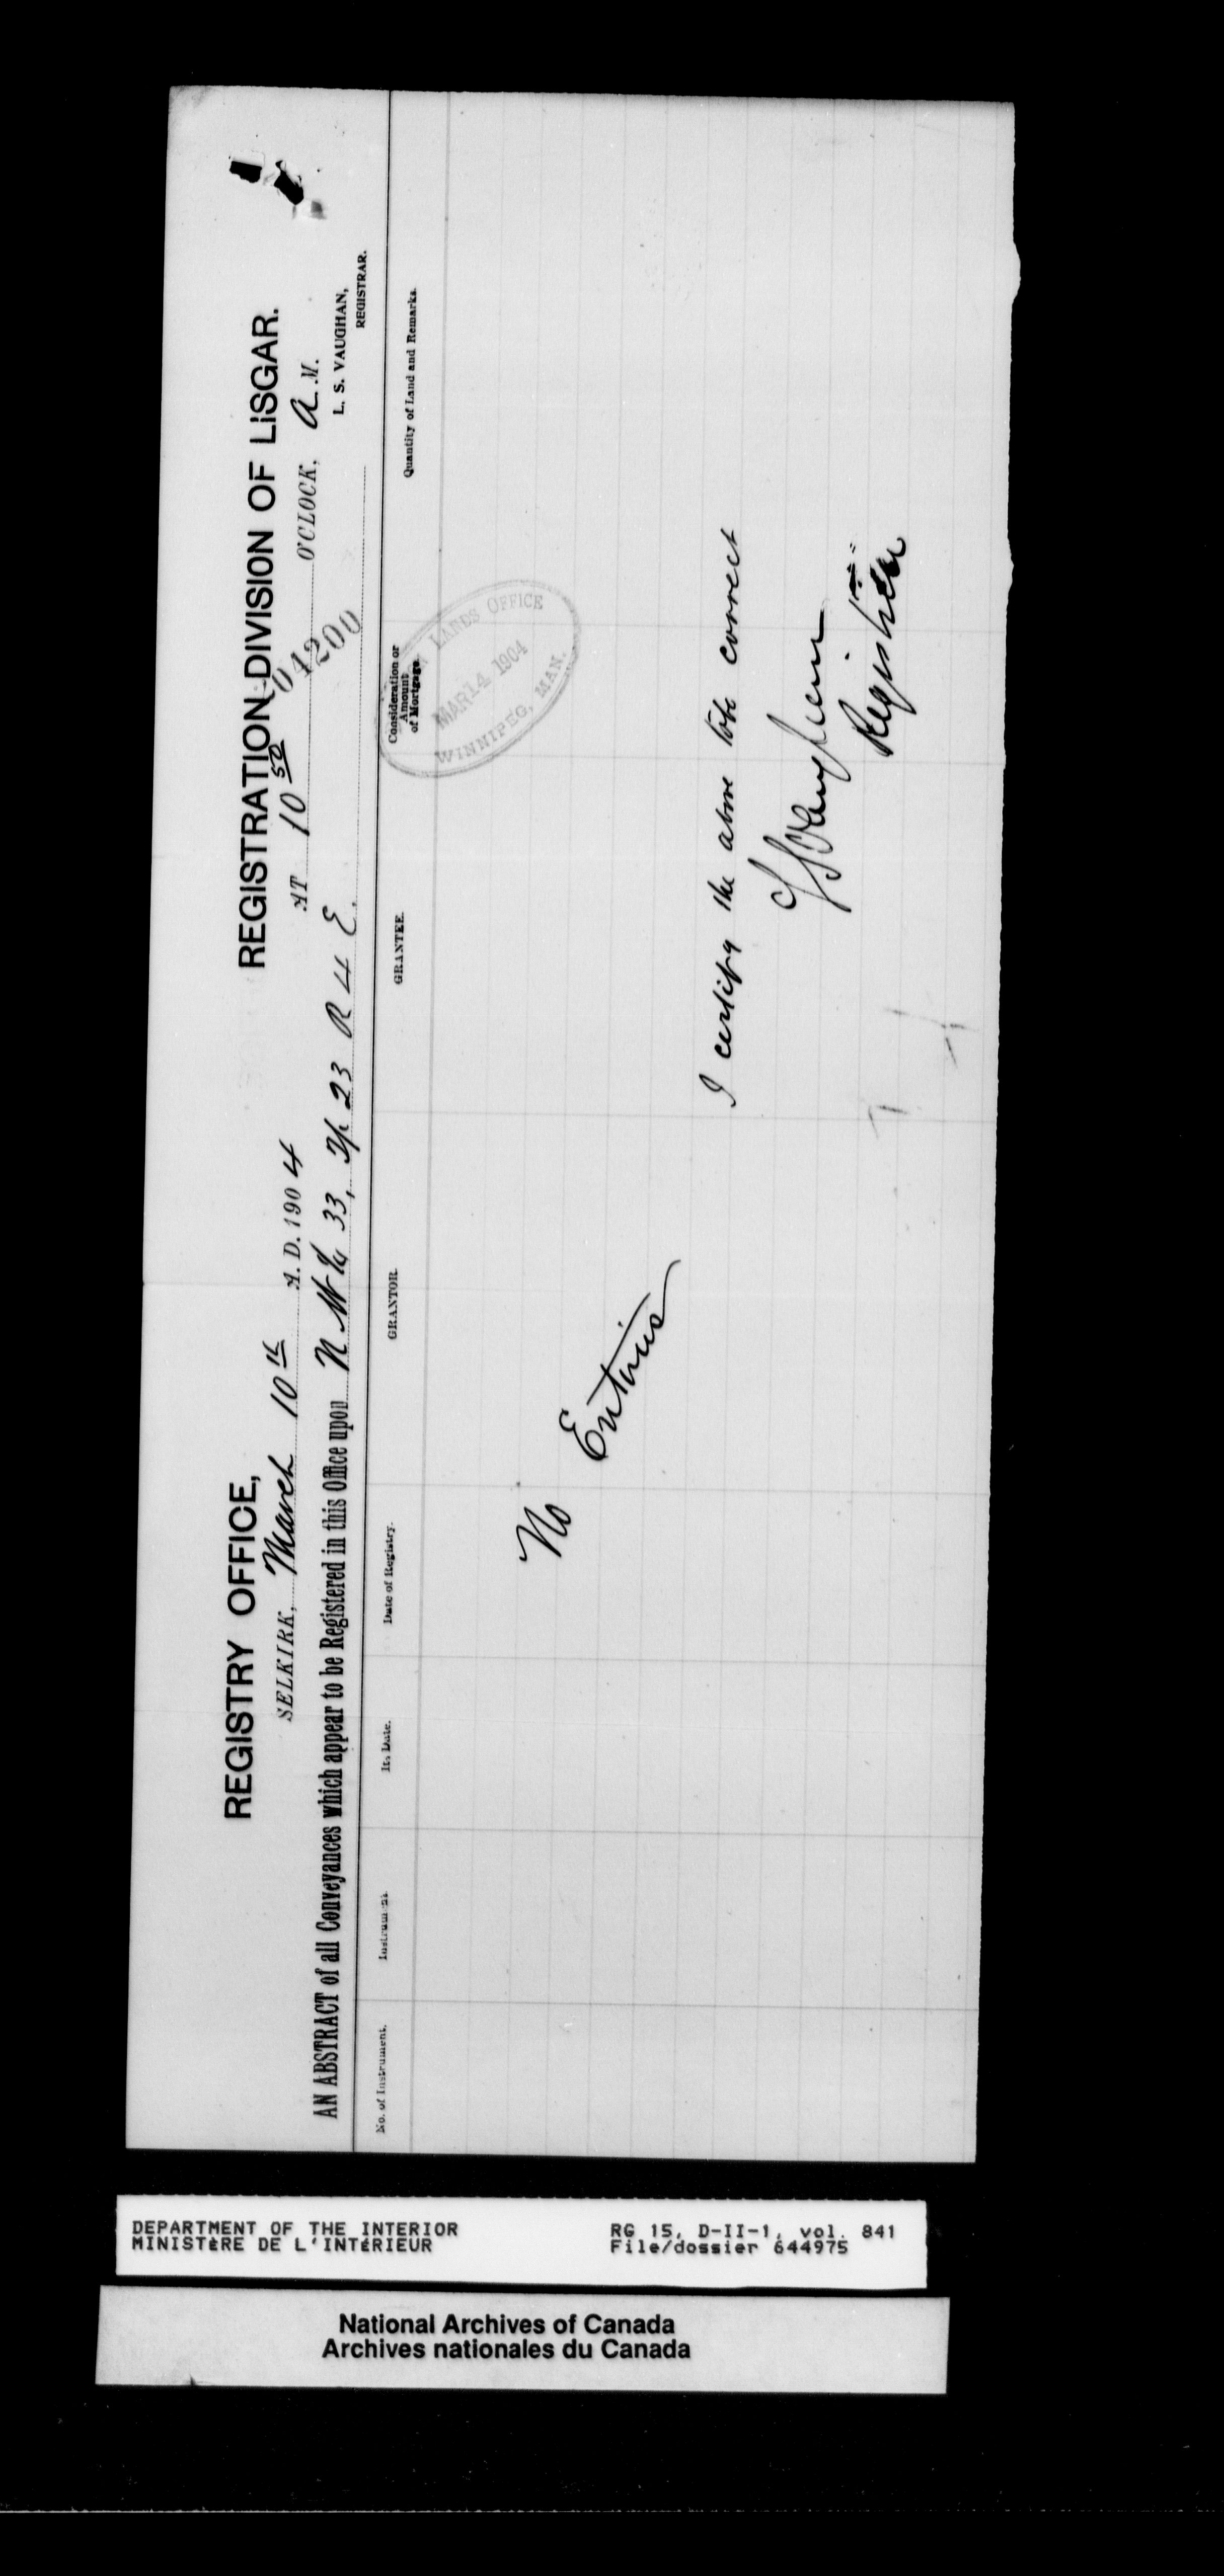 REGISTRY OFFICE, REGISTRATION DIVISION OF LISGAR.
SELKIRK, March 10th A. D. 1904 AT 10 50 O'CLOCK, A M.
04200
L. S. VAUGHAN,
REGISTRAR.
AN ABSTRACT of all Conveyances which appear to be Registered in this Office upon N W ¼ 33, Tp. 23 R 4 E.
No. of Instrument. Instrument. Its Date. Date of Registry. GRANTOR. GRANTEE. Consideration or Amount of Mortgage. Quantity of Land and Remarks.
LANDS OFFICE
MAR 14 1904
WINNIPEG, MAN.
No Entries
I certify the above to be correct
L S Vaughan
Registrar
DEPARTMENT OF THE INTERIOR RG 15, D-II-1, vol. 841
MINISTÈRE DE L'INTÉRIEUR File/dossier 644975
National Archives of Canada
Archives nationales du Canada